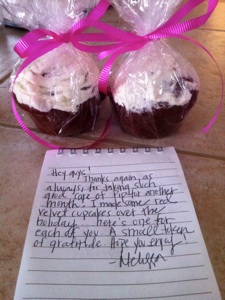 Hey guys!
Thanks again, as
always, for taking such
good care of Tip for another
month! I made some red
velvet cupcakes over the
holiday - here's one for
each of you. A small token
of gratitude. Hope you enjoy!